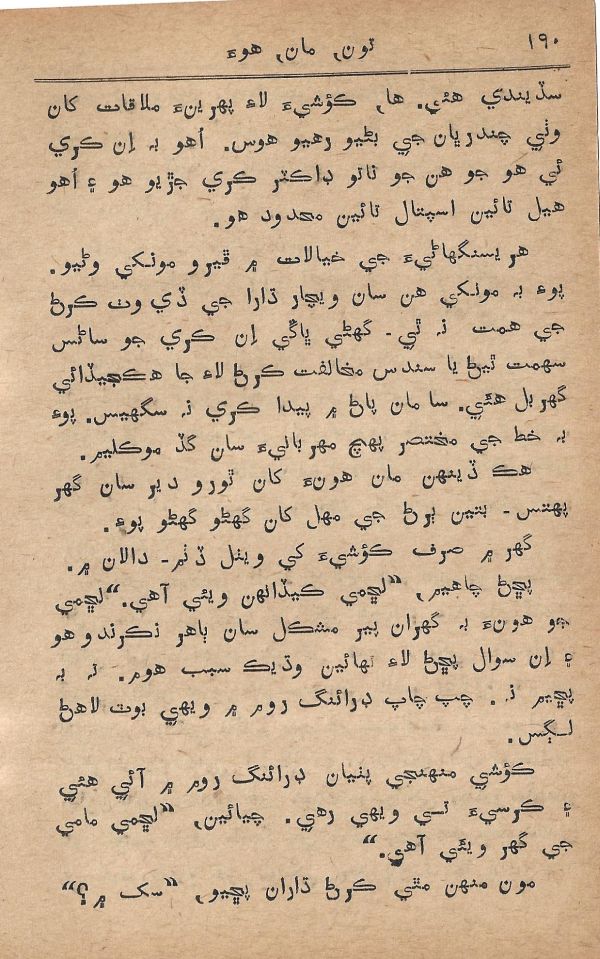 تون، مان، هوءَ
۱۹۰
سڏيندي هئي. ها، ڪؤشيءَ لاءِ پهرينءَ ملاقات کان
وٺي چندريان جي بڻيو رهيو هوس. اُهو بہ اِن ڪري
ئي هو جو هن جو ناتو ڊاڪٽر ڪري جڙيو هو ۽ اُهو
هيل تائين اسپتال تائين محدود هو.
هر يسنگهاڻيءَ جي خيالات ۾ ڦيرو مونکي وڻيو.
پوءِ بہ مونکي هن سان ويچار ڌارا جي ڏي وٺ ڪرڻ
جي همت نہ ٿي۔ گهڻي ڀاڱي اِن ڪري جو ساڻس
سهمت ٿيڻ يا سندس مخالفت ڪرڻ لاءِ جا هڪجيڏائي
گهربل هئي. سا مان پاڻ ۾ پيدا ڪري نہ سگهيس. پوءِ
بہ خط جي مختصر پهچ مهربانيءَ سان گڏ موڪليم.
هڪ ڏينهن مان هونءَ کان ٿورو دير سان گهر
پهتس۔ بتين ٻرڻ جي مهل کان گهڻو گهڻو پوءِ.
گهر ۾ صرف ڪؤشيءَ کي ويٺل ڏٺم۔ دالان ۾.
پڇڻ چاهيم، ”لڇمي ڪيڏانهن ويئي آهي.“ لڇمي
جو هونءَ بہ گهران پير مشڪل سان ٻاهر نڪرندو هو
۽ اِن سوال پڇڻ لاءِ نهائين وڌيڪ سبب هوم. نہ بہ
پڇيم نہ. چپ چاپ ڊرائنگ روم ۾ ويهي بوٽ لاهڻ
لڳس.
ڪؤشي منهنجي پٺيان ڊرائنگ روم ۾ آئي هئي
۽ ڪرسيءَ تي ويهي رهي. چيائين، ”لڇمي مامي
جي گهر ويئي آهي.“
مون منهن مٿي ڪرڻ ڌاران پڇيو، ”سک ۾؟“